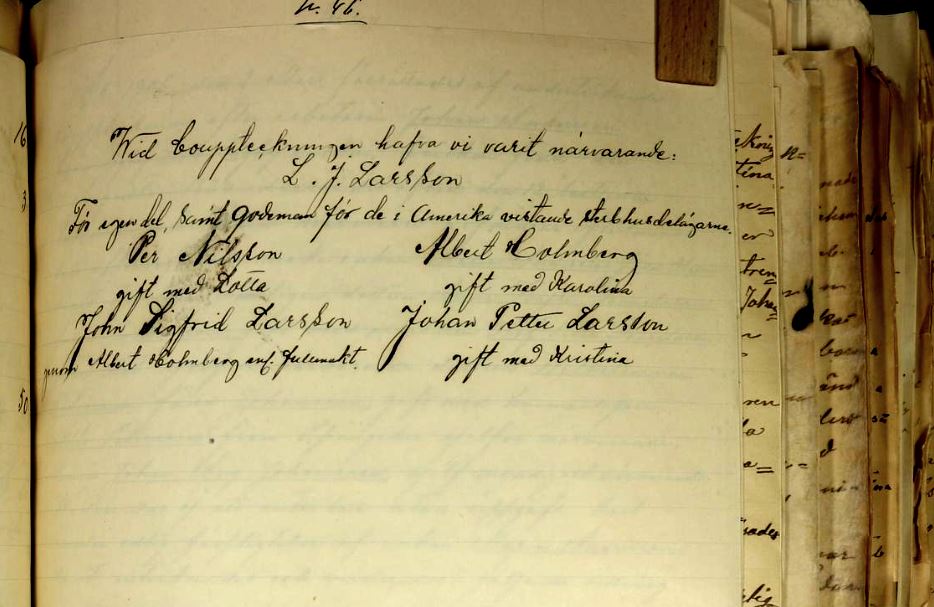 N. 46.
Wid bouppteckningen hafva vi varit närvarande:
L. J. Larsson
För egen del, samt godeman för de i Amerika vistande sterbhusdelägarne.
Per Nilsson Albert Holmberg
gift med Lotta gift med Karolina
John Sigfrid Larsson Johan Petter Larsson
genom Albert Holmberg enl. fullmakt. gift med Kristina
16
3
50